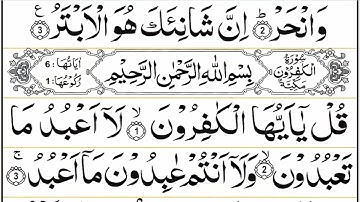 وَانْحَرْ ۝٢ اِنَّ شَانِئَكَ هُوَ الْاَبْتَرُ ۝٣ ع
سُوْرَةُ الْكٰفِرُوْنَ مَكِّيَّةٌ بِسْمِ اللّٰهِ الرَّحْمٰنِ الرَّحِيْمِ اٰيَاتُهَا : 6 رُكُوْعُهَا : 1
قُلْ يٰۤاَيُّهَا الْكٰفِرُوْنَ ۝١ لَاۤ اَعْبُدُ مَا
تَعْبُدُوْنَ ۝٢ وَلَاۤ اَنْتُمْ عٰبِدُوْنَ مَاۤ اَعْبُدُ ۝٣